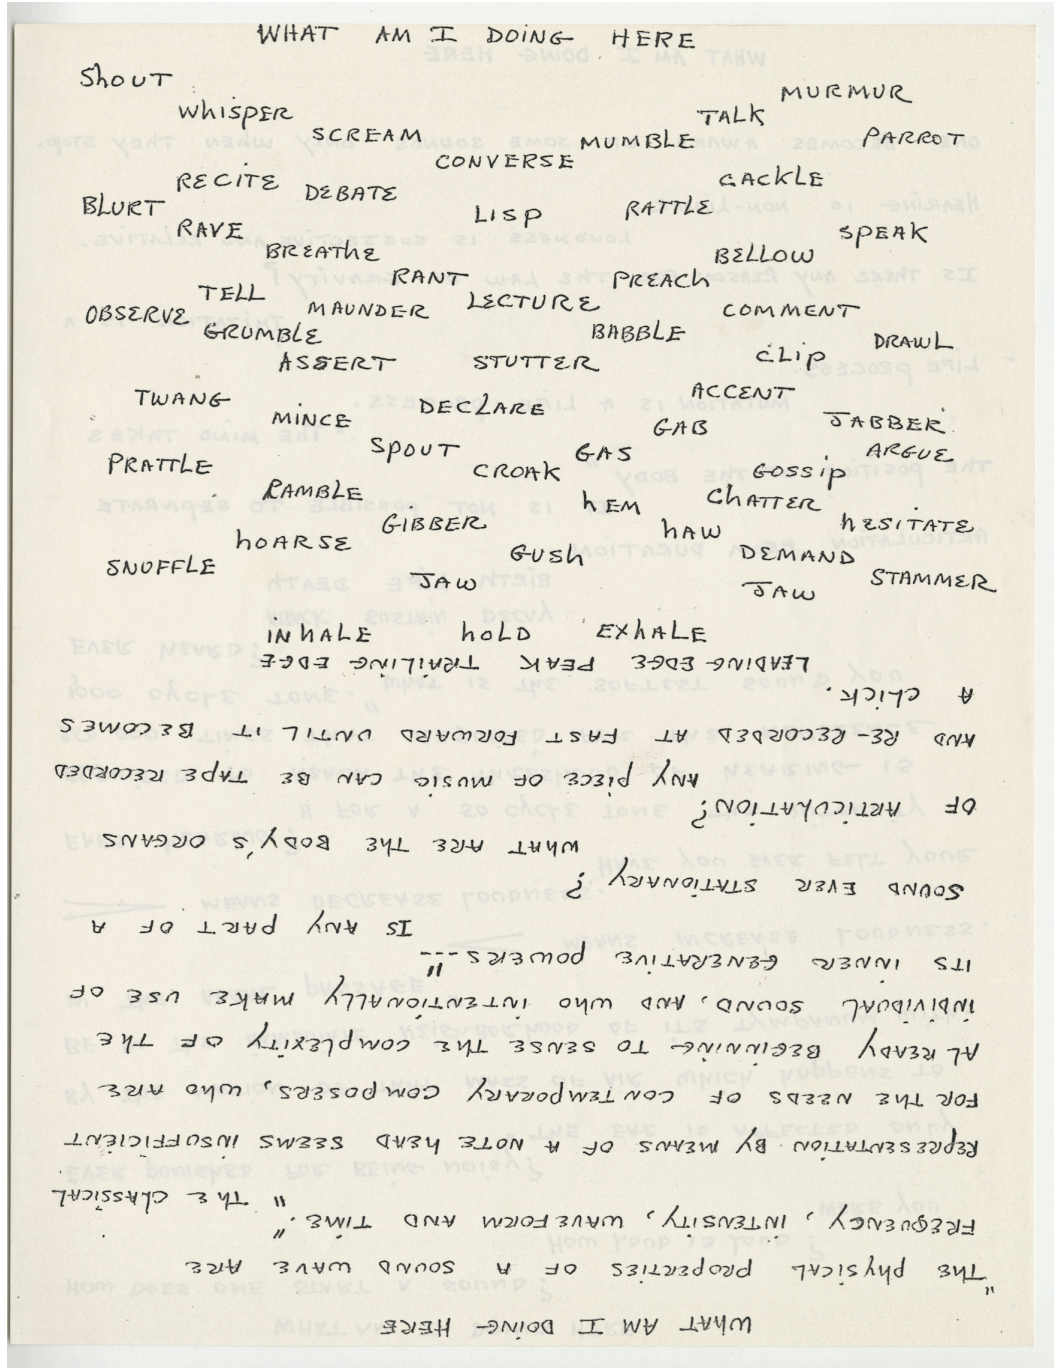 WHAT AM I DOING HERE
SHOUT
MURMUR
WHISPER TALK
SCREAM MUMBLE PARROT
CONVERSE
RECITE DEBATE CACKLE
BLURT LISP RATTLE
RAVE SPEAK
BREATHE BELLOW
RANT PREACH
TELL MAUNDER LECTURE COMMENT
OBSERVE GRUMBLE BABBLE DRAWL
ASSERT STUTTER CLIP
TWANG ACCENT
MINCE DECLARE GAB JABBER
SPOUT GAS ARGUE
PRATTLE CROAK GOSSIP
RAMBLE HEM CHATTER
GIBBER HAW HESITATE
HOARSE GUSH DEMAND
SNUFFLE JAW JAW STAMMER
INHALE HOLD EXHALE
WHAT AM I DOING HERE
"THE PHYSICAL PROPERTIES OF A SOUND WAVE ARE
FREQUENCY, INTENSITY, WAVEFORM AND TIME." "THE CLASSICAL
REPRESENTATION BY MEANS OF A NOTE HEAD SEEMS INSUFFICIENT
FOR THE NEEDS OF CONTEMPORARY COMPOSERS, WHO ARE
ALREADY BEGINNING TO SENSE THE COMPLEXITY OF THE
INDIVIDUAL SOUND, AND WHO INTENTIONALLY MAKE USE OF
ITS INNER GENERATIVE POWERS---"
IS ANY PART OF A
SOUND EVER STATIONARY?
WHAT ARE THE BODY'S ORGANS
OF ARTICULATION?
ANY PIECE OF MUSIC CAN BE TAPE RECORDED
AND RE-RECORDED AT FAST FORWARD UNTIL IT BECOMES
A CLICK.
LEADING EDGE PEAK TRAILING EDGE